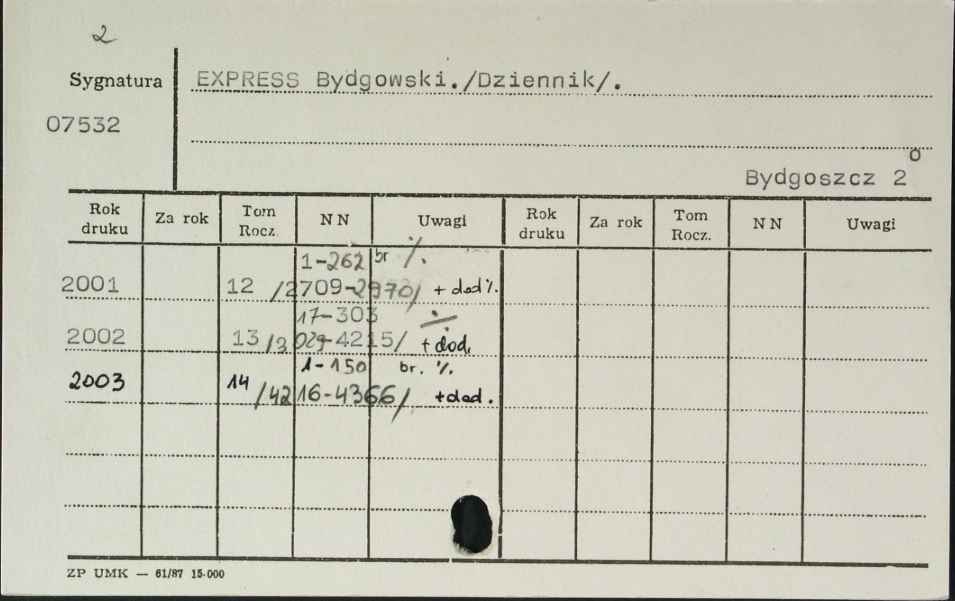 2
Sygnatura EXPRESS Bydgowski./Dziennik/.
07532
Bydgoszcz 2°
Rok druku Za rok Tom Rocz. N N Uwagi Rok druku Za rok Tom Rocz. N N Uwagi
1-262 br %.
2001 12 /2709-2970/ + dod %.
17-303 ÷
2002 13 /3029-4215/ + dod.
1-150 br. %.
2003 14 /4216-4366/ + dod.
ZP UMK — 61/87 15·000